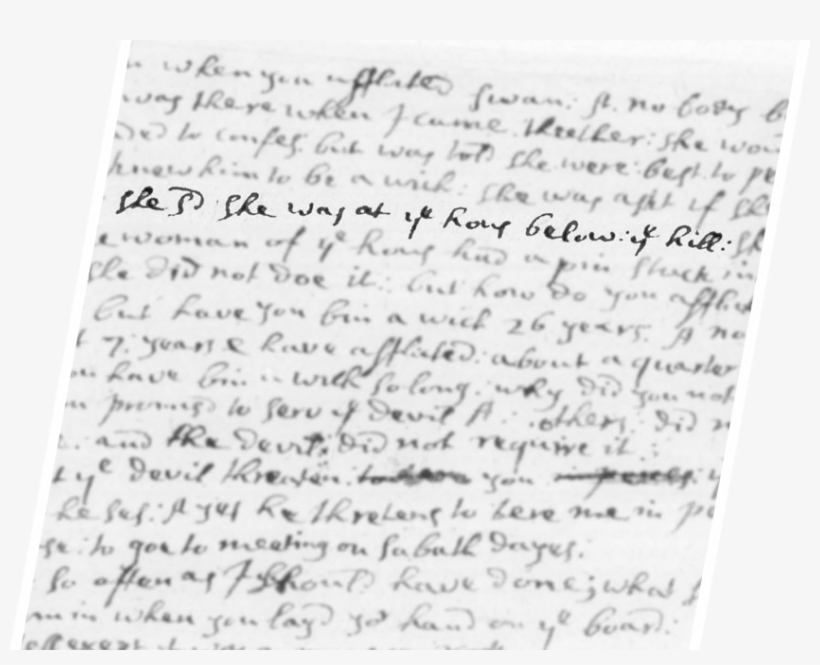 when you afflicted Swan: A. no body
was there when I came theither: she
ded to confes. but was told she were best to
knew him to be a wich: she was askt if
she sd she was at ye hous below: ye hill:
woman of ye hous had a pin stuck in
she did not doe it: but how do you afflict
but have you bin a wich 26 years. A no
7. years & have afflicted: about a quarter
have bin a wich so long: why did you not
promisd to serv ye devil A: others: did
and the devil; did not require it:
ye devil threaten you
he ses: A yes he thretens to tere me in
to goe to meeting on sabath dayes:
so often as I should have done; what
when you layd yor hand on ye board: